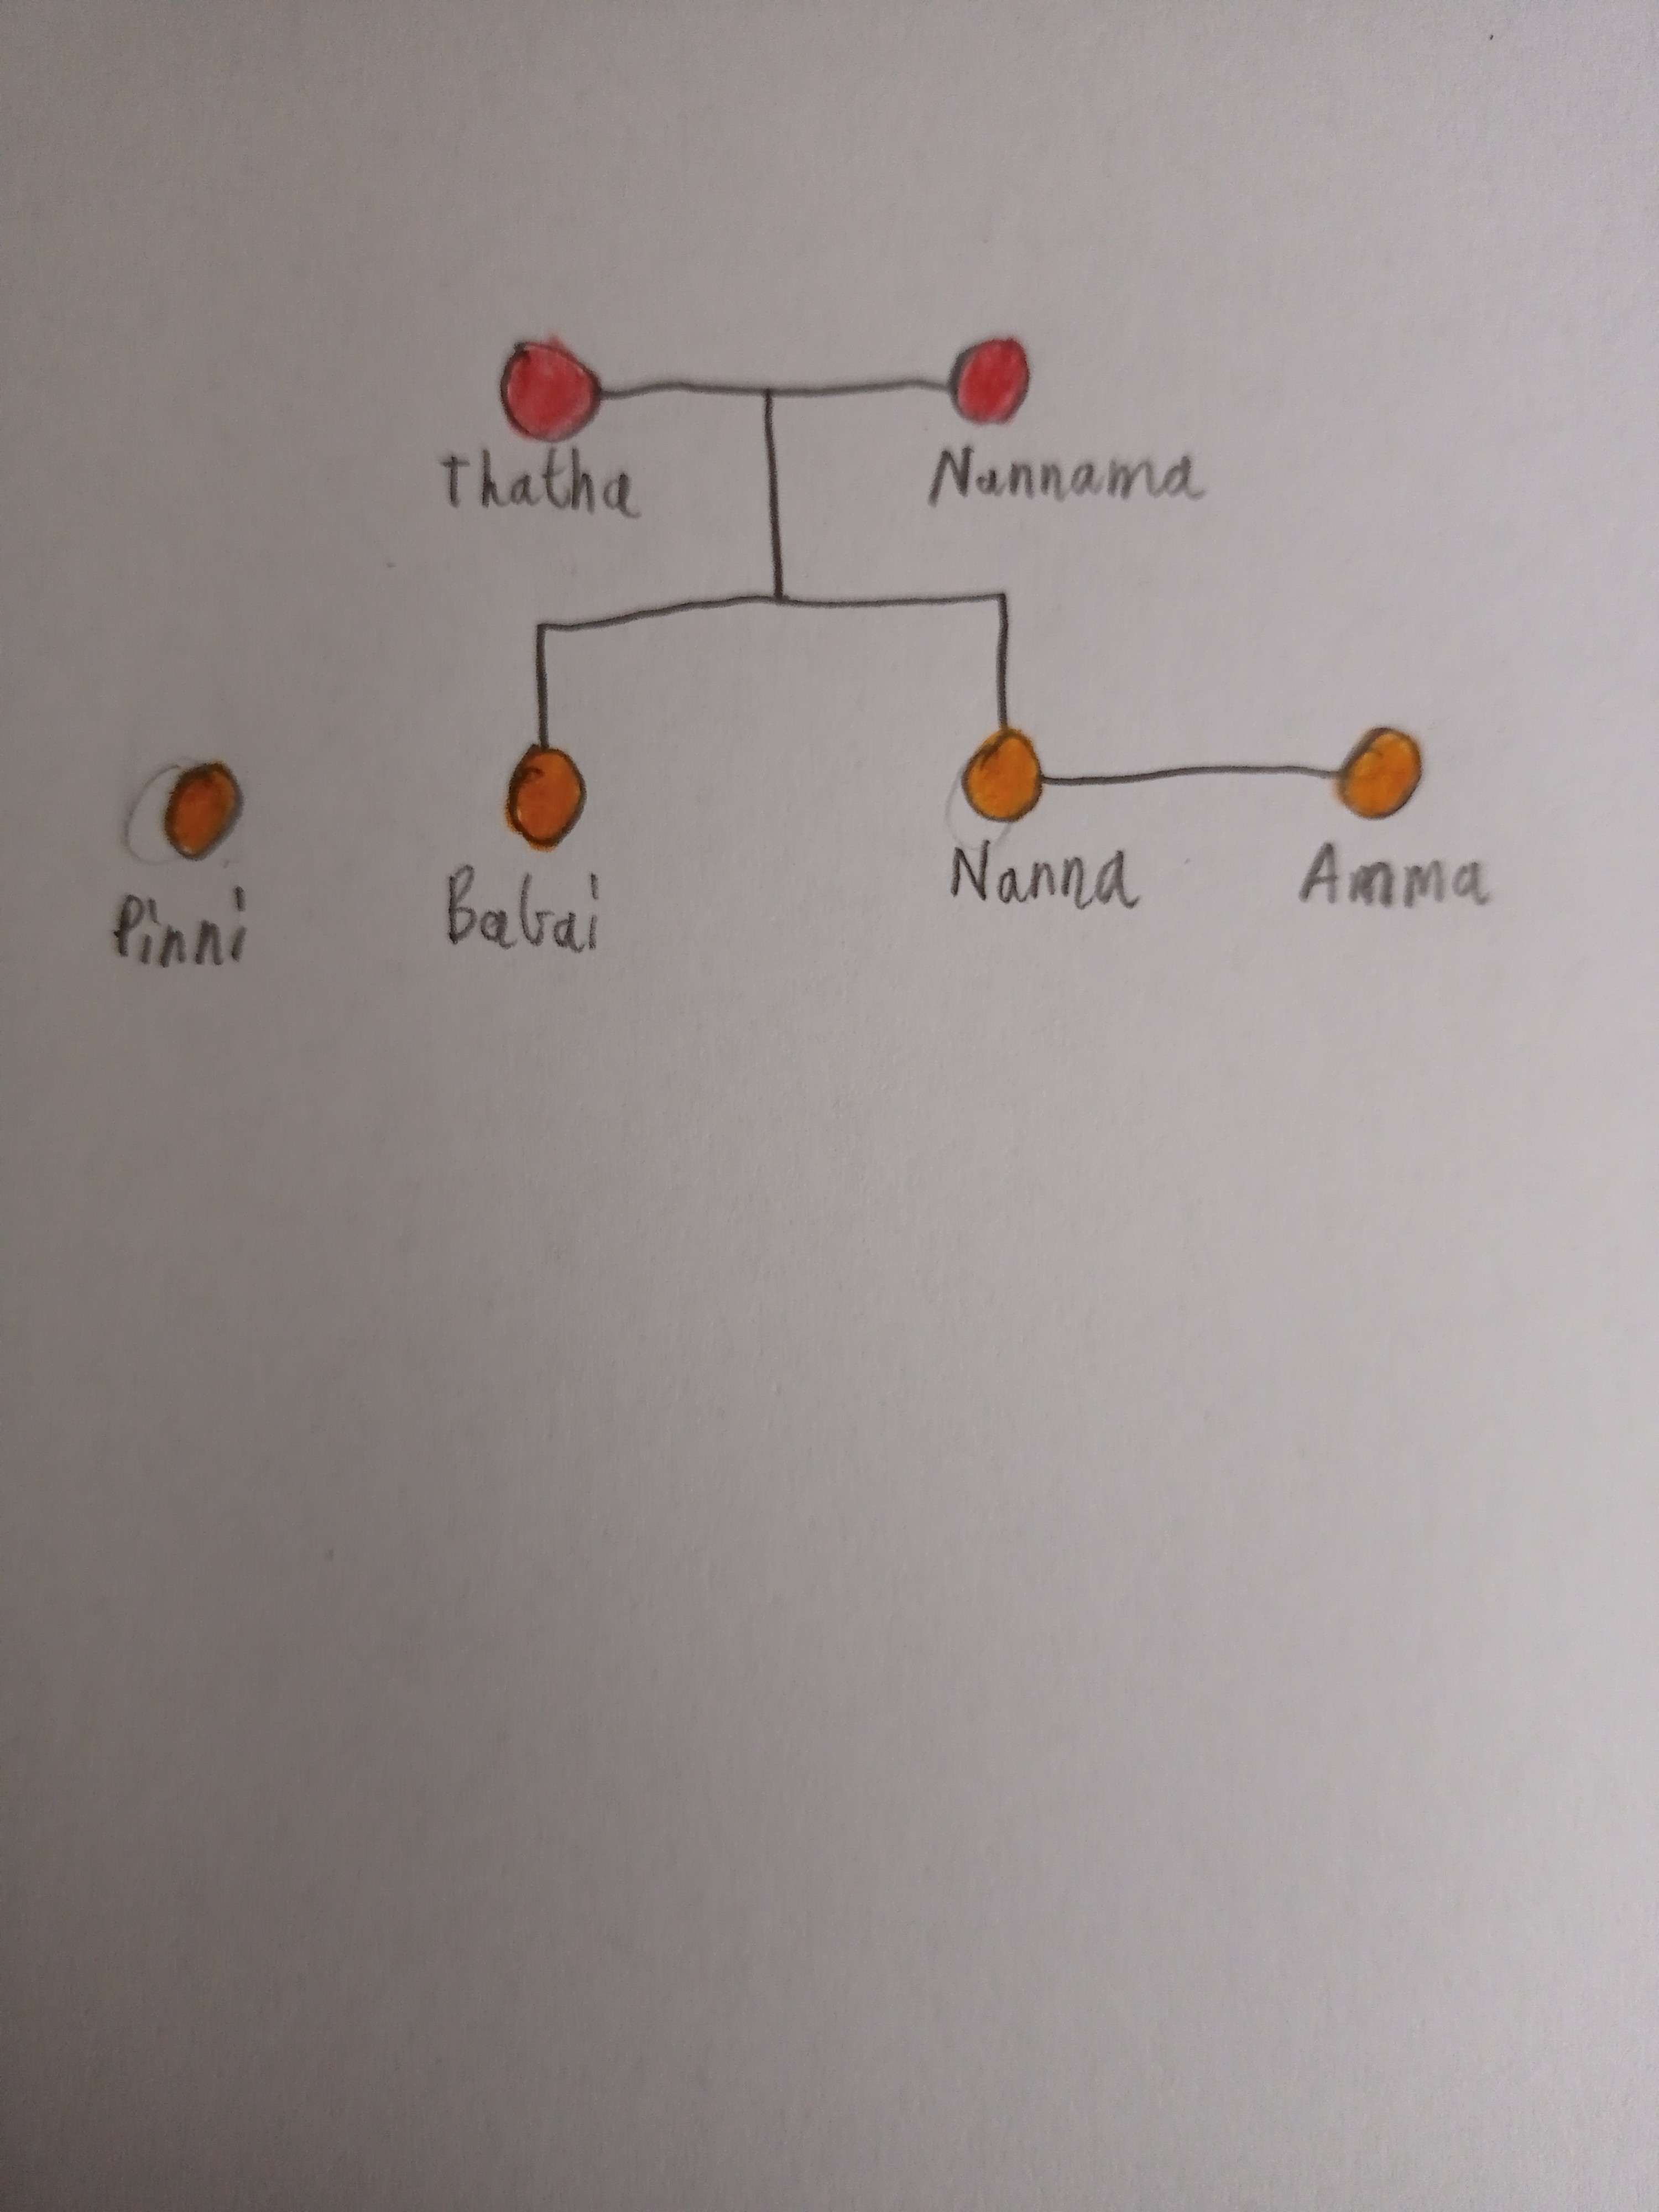 Thatha Nannama
Pinni Babai Nanna Amma